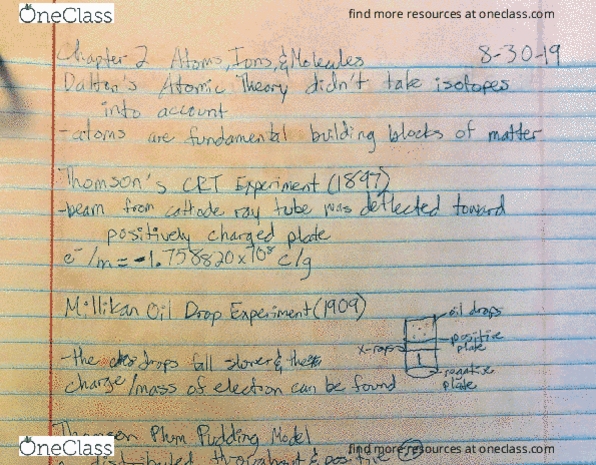 OneClass
find more resources at oneclass.com
Chapter 2 Atoms, Ions, & Molecules 8-30-19
Dalton's Atomic Theory didn't take isotopes
into account
-atoms are fundamental building blocks of matter
Thomson's CRT Experiment (1897)
-beam from cathode ray tube was deflected toward
positively charged plate
e⁻/m = -1.758820x10⁸ c/g
Millikan Oil Drop Experiment (1909)
oil drops
positive
plate
x-rays
negative
plate
-the drops fall slower & the
charge/mass of electron can be found
Thomson Plum Pudding Model
distributed throughout & positive
OneClass
find more resources at oneclass.com